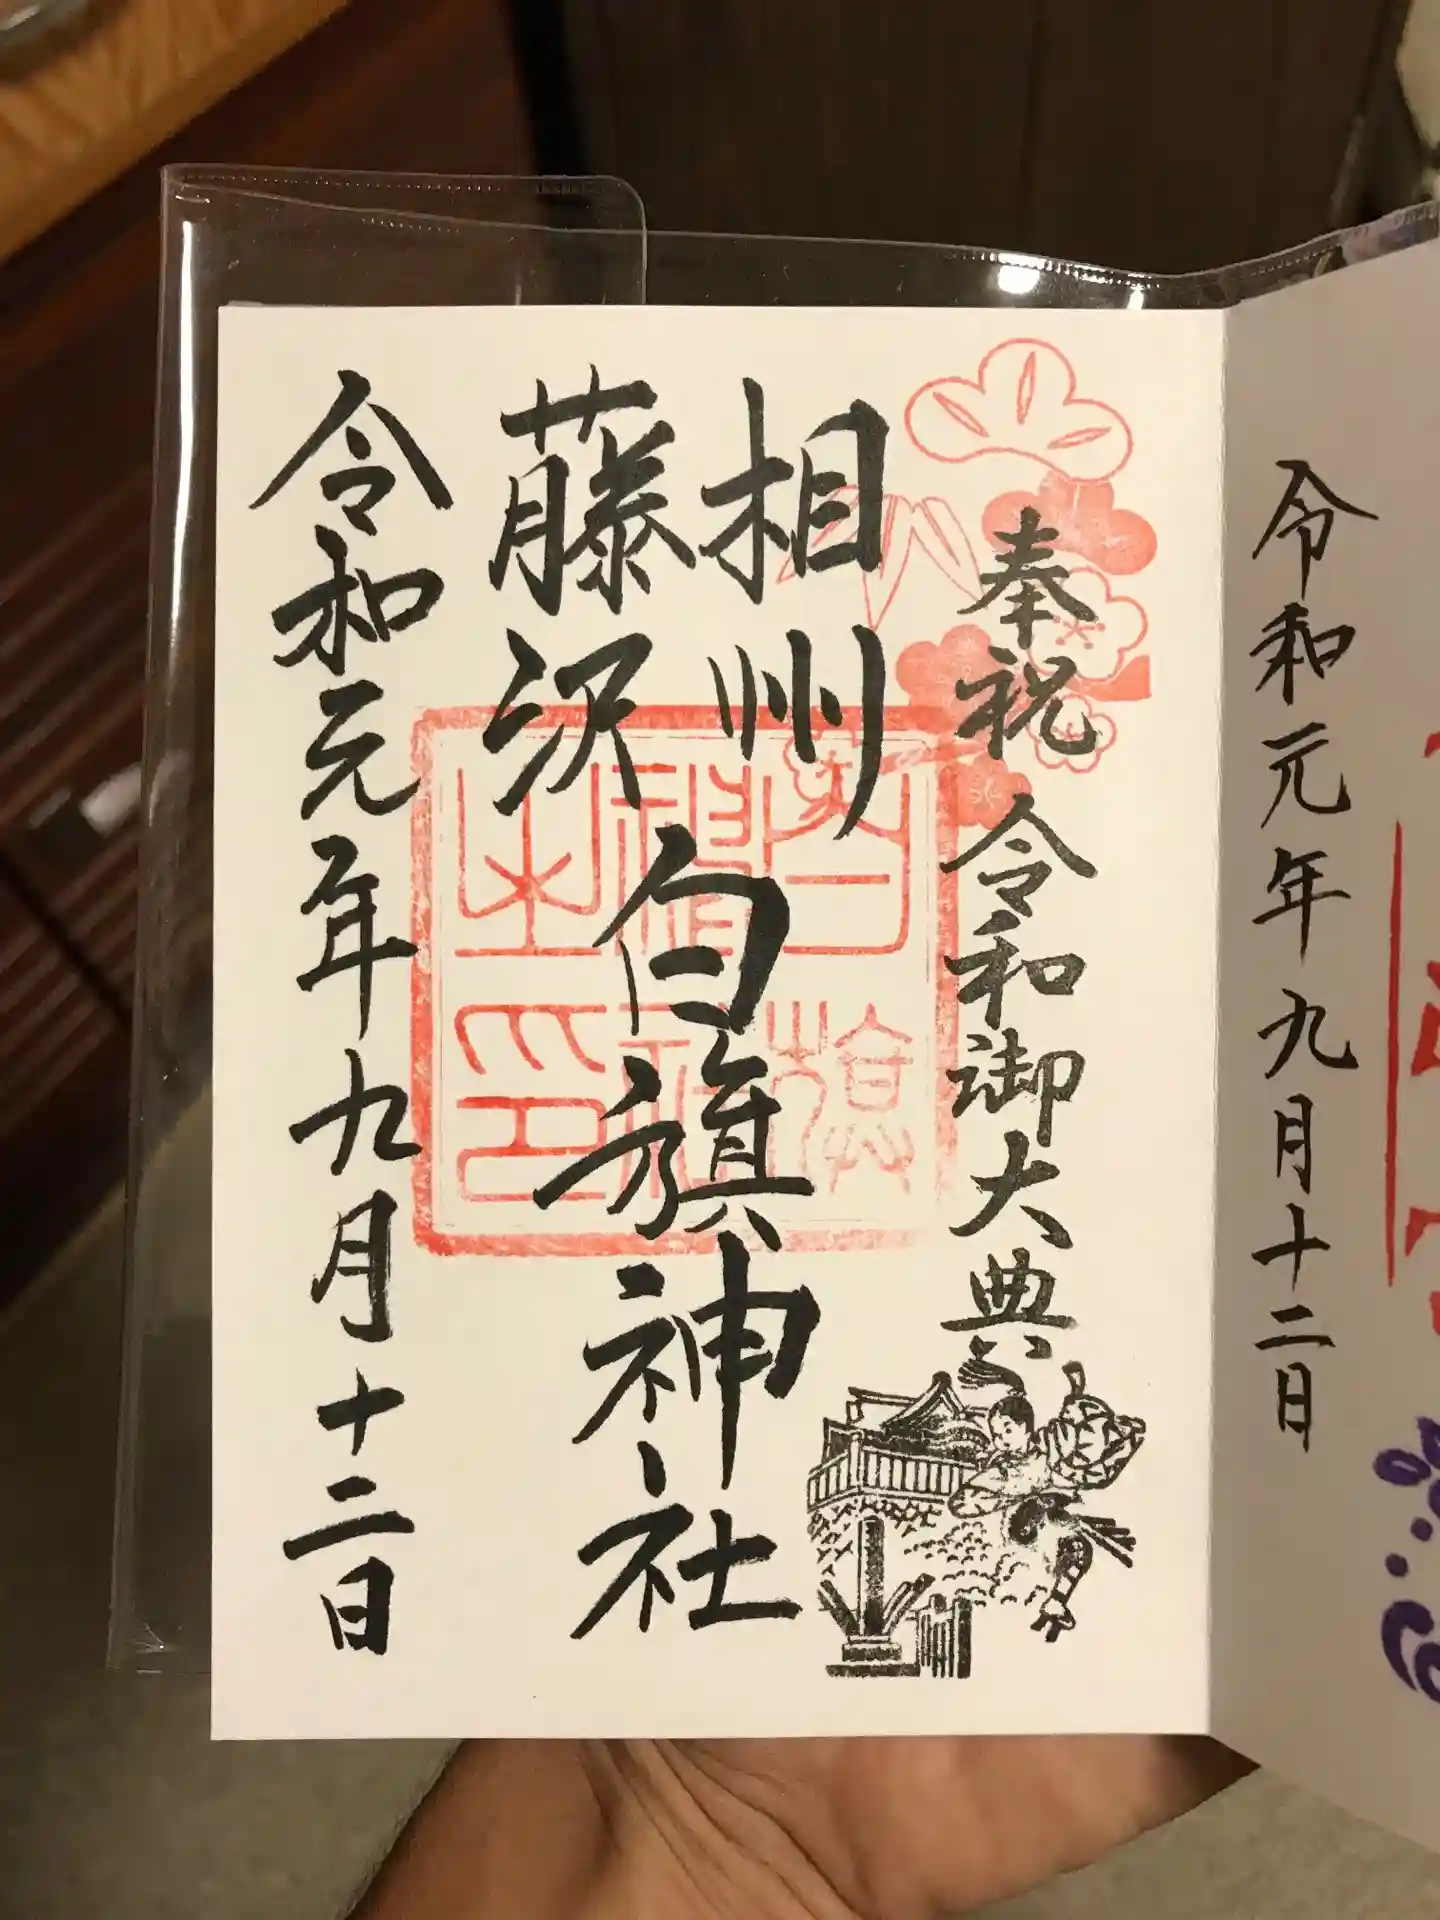 令和元年九月十二日
奉祝 令和御大典
相州
藤沢
白旗神社
令和元年九月十二日
白旗
神社
之印